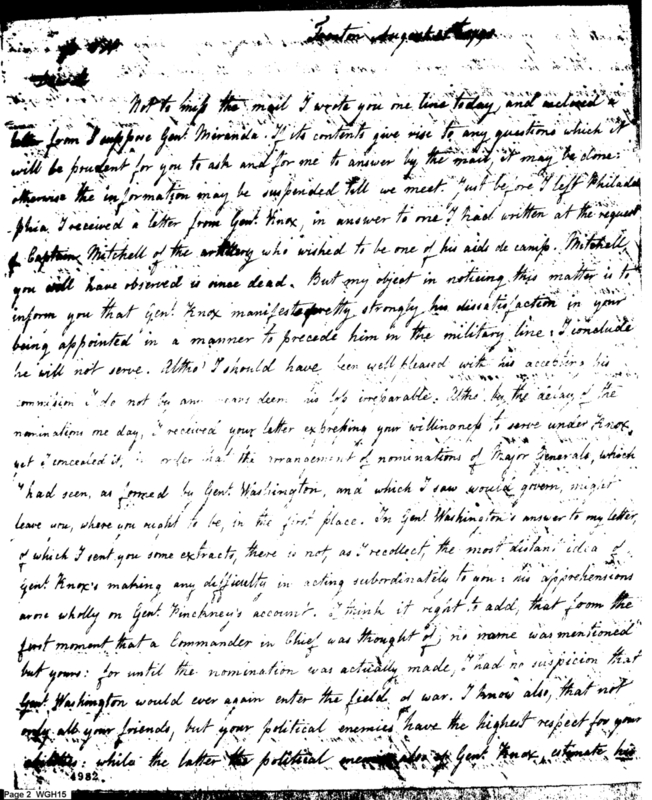 Trenton August
Not to miss the mail I wrote you one line today, and inclosed a
letter from I suppose Genl. Miranda. If its contents give rise to any questions which it
will be prudent for you to ask and for me to answer by the mail, it may be done:
otherwise the information may be suspended till we meet. Just before I left Philadel
-phia, I received a letter from Genl. Knox, in answer to one I had written at the request
of Captain Mitchell of the artillery who wished to be one of his aids de camp. Mitchell
you will have observed is since dead. But my object in noticing this matter is to
inform you that Genl. Knox manifests pretty strongly his dissatisfaction in your
being appointed in a manner to precede him in the military line: I conclude
he will not serve. Altho' I should have been well pleased with his accepting his
commission I do not by any means deem his loss irreparable. Altho' by the delay of the
nominations one day, I received your letter expressing your willingness to serve under Knox,
yet I concealed it, in order that the arrangement of nominations of Major Generals, which
I had seen, as formed by Genl. Washington, and which I saw would govern, might
leave you, where you ought to be, in the first place. In Genl. Washington's answer to my letter,
of which I sent you some extracts, there is not, as I recollect, the most distant idea of
Genl. Knox's making any difficulty in acting subordinately to you: his apprehensions
arose wholly on Genl. Pinckney's account. I think it right to add, that from the
first moment that a Commander in Chief was thought of, no name was mentioned
but yours: for until the nomination was actually made, I had no suspicion that
Genl. Washington would ever again enter the field of war. I know also, that not
only all your friends, but your political enemies have the highest respect for your
abilities: while the latter the political enemies also of Genl. Knox, estimate his
4982
Page 2 WGH15